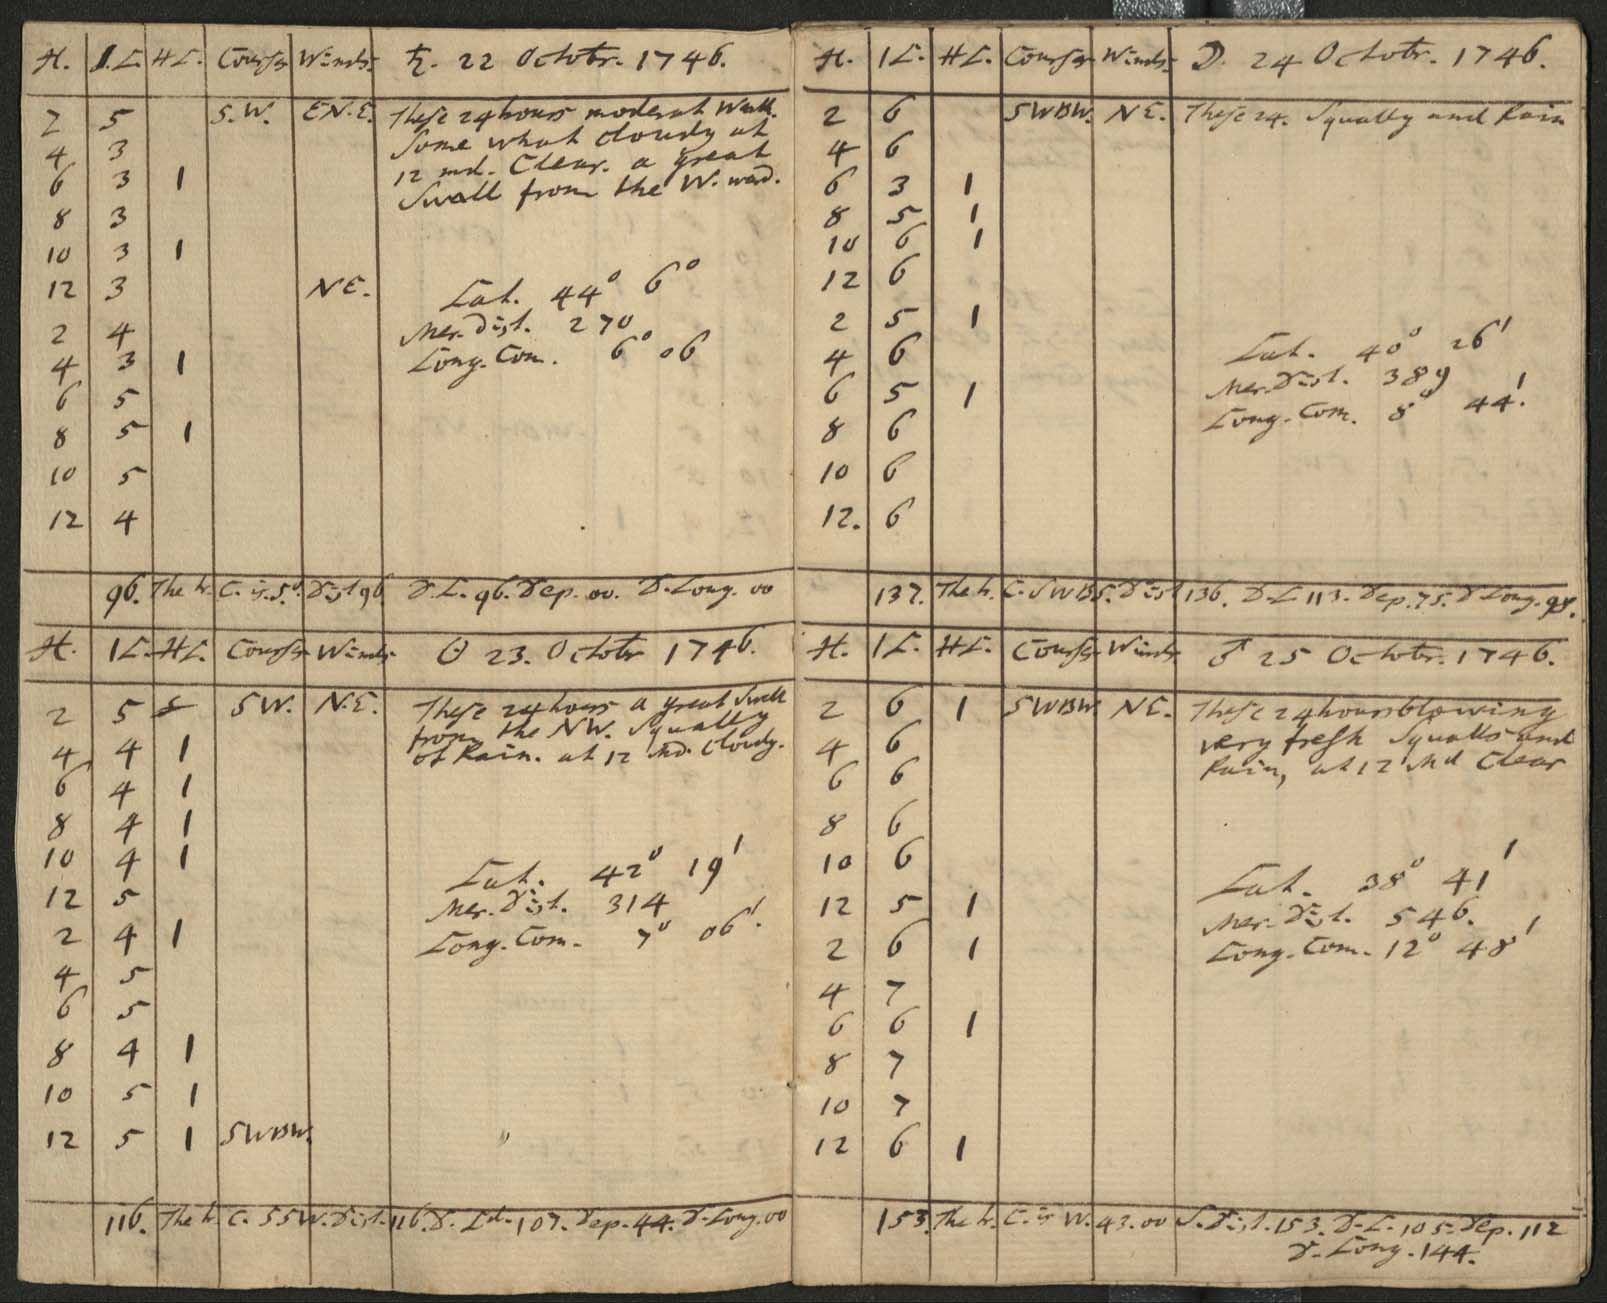 H. 1.L. HL. Courses Winds. ♄. 22 Octobr. 1746.
2 5 S.W. EN.E. These 24 hours moderat Weath.
4 3 Some what cloudy at
6 3 1 12 md. Clear. a great
8 3 Swall from the W. ward.
10 3 1
12 3 NE. Lat. 44° 6°
2 4 Mer. Dist. 270
4 3 1 Long. Com. 6° 06
6 5
8 5 1
10 5
12 4
96. The tr. C. is. S°. Dist 96. D.L. 96. Dep. 00. D. Long. 00
H. 1L. HL. Courses Winds. ☉ 23. Octobr 1746.
2 5 S.W. N.E. These 24 hours a great Swell
4 4 1 from the NW. Squally
6 4 1 of Rain. at 12 Md. Cloudy.
8 4 1
10 4 1 Lat. 42° 19'
12 5 Mer. Dist. 314
2 4 1 Long. Com. 7° 06'.
4 5
6 5
8 4 1
10 5 1
12 5 1 SWBW.
116. The tr. C. SSW. Dist. 116. D. Lt. 107. Dep. 44. D. Long. 00
H. 1L. HL. Courses Winds. ☽. 24 Octobr. 1746.
2 6 SWBW. NE. These 24. Squally and Rain
4 6
6 3 1
8 5 1
10 6 1
12 6
2 5 1 Lat. 40° 26'
4 6 Mer. Dist. 389
6 5 1 Long. Com. 8° 44'.
8 6
10 6
12. 6
137. The tr. C. SWBS. Dist 136. D. L 113. Dep. 75. D Long. 98.
H. 1L. HL. Courses Winds ♂ 25 Octobr. 1746.
2 6 1 SWBW. NE. These 24 hours blowing
4 6 very fresh Squalls and
6 6 Rain, at 12 Md Clear
8 6
10 6 Lat. 38° 41'
12 5 1 Mer. Dist. 546.
2 6 1 Long. Com. 12° 48'
4 7
6 6 1
8 7
10 7
12 6 1
153. The tr. C. is W. 43.00 S. Dist. 153. D. L. 105. Dep. 112
D. Long. 144.